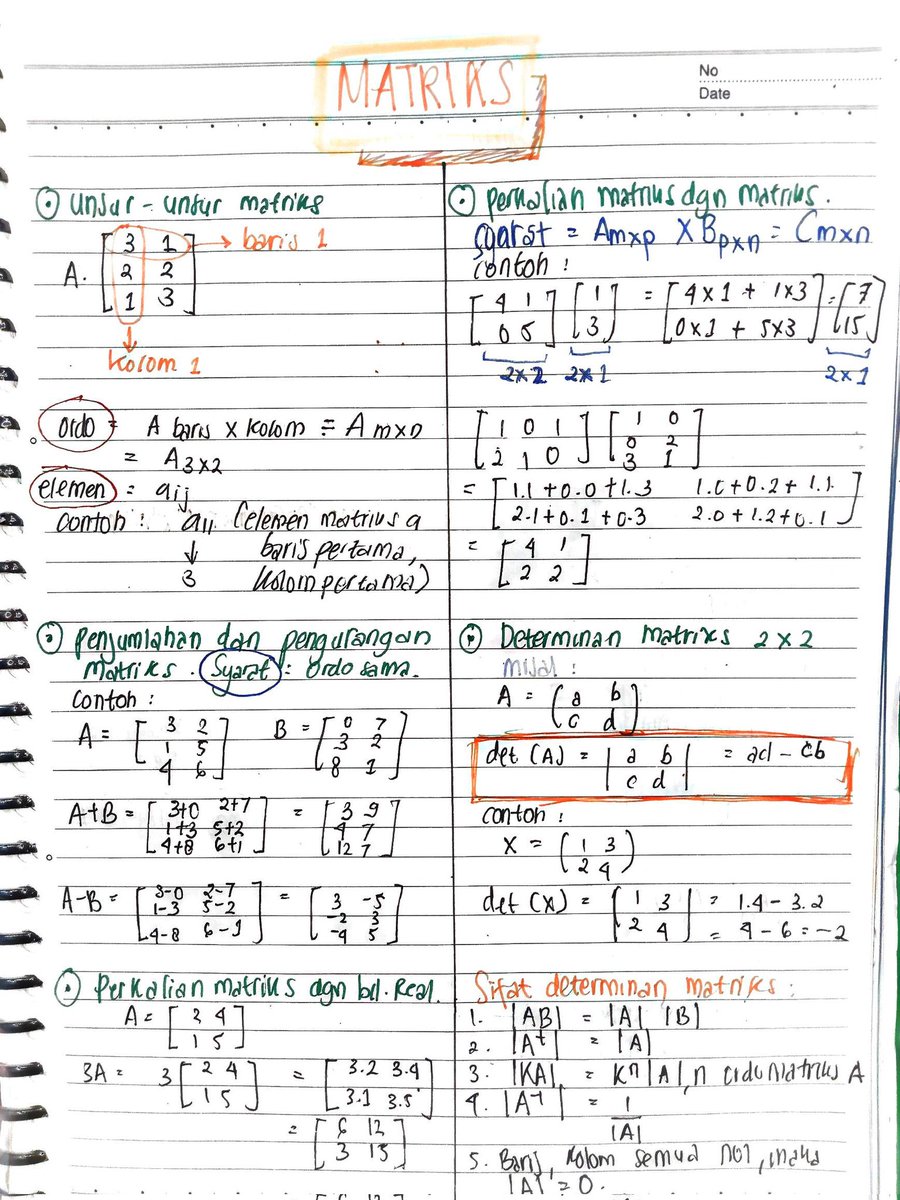 MATRIKS
No
Date
Unsur - unsur matriks
A. [3 1 → baris 1
2 2
1 3]
↓
Kolom 1
Ordo = A baris x kolom = A mxn
= A3x2
elemen = aij
contoh : a11 (elemen matriks a
↓ baris pertama,
3 kolom pertama)
Penjumlahan dan pengurangan
Matriks. Syarat : Ordo sama.
Contoh :
A = [3 2
1 5
4 6] B = [0 7
3 2
8 1]
A+B = [3+0 2+7
1+3 5+2
4+8 6+1] = [3 9
4 7
12 7]
A-B = [3-0 2-7
1-3 5-2
4-8 6-1] = [3 -5
-2 3
-4 5]
Perkalian matriks dgn bil. Real.
A = [2 4
1 5]
3A = 3 [2 4
1 5] = [3.2 3.4
3.1 3.5]
= [6 12
3 15]
Perkalian matriks dgn matriks.
Syarat = Amxp X Bpxn = Cmxn
contoh :
[4 1
0 5] [1
3] = [4x1 + 1x3
0x1 + 5x3] = [7
15]
2x2 2x1 2x1
[1 0 1
2 1 0] [1 0
0 2
3 1]
= [1.1+0.0+1.3 1.0+0.2+1.1
2.1+0.1+0.3 2.0+1.2+0.1]
= [4 1
2 2]
Determinan Matriks 2x2
misal :
A = (a b
c d]
det (A) = |a b
c d| = ad - cb
contoh :
X = (1 3
2 4)
det (X) = [1 3
2 4| = 1.4 - 3.2
= 4 - 6 = -2
Sifat determinan matriks :
1. |AB| = |A| |B|
2. |At| = |A|
3. |KA| = Kn |A|, n ordo matriks A
4. |A-1| = 1
|A|
5. Baris, kolom semua nol, maka
|A| = 0.